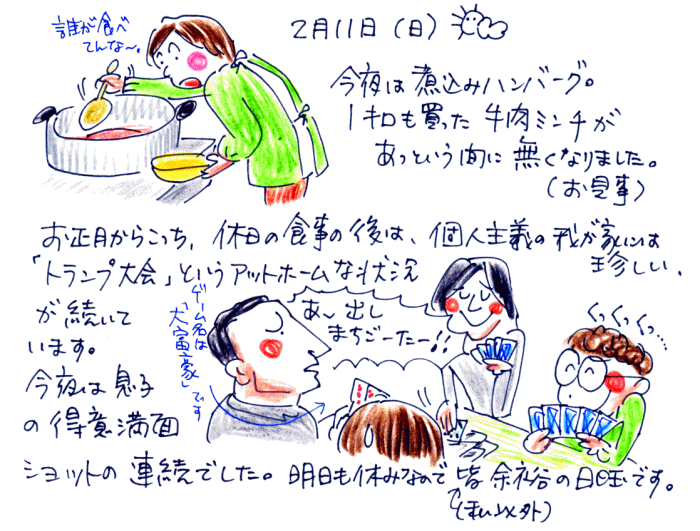 誰が食べ
てんな〜。
2月11日(日)
今夜は煮込みハンバーグ。
1キロも買った牛肉ミンチが
あっという間に無くなりました。
(お見事)
お正月からこっち、休日の食事の後は、個人主義の我が家には
珍しい、
「トランプ大会」というアットホームな状況
が続いて
います。
今夜は息子
の得意満面
ショットの連続でした。明日も休みなので皆余裕の日曜です。
(ほい以外)
ゲーム名は
「大富豪」です
あ〜出し
まちごーたー!!
くっくっくっ…